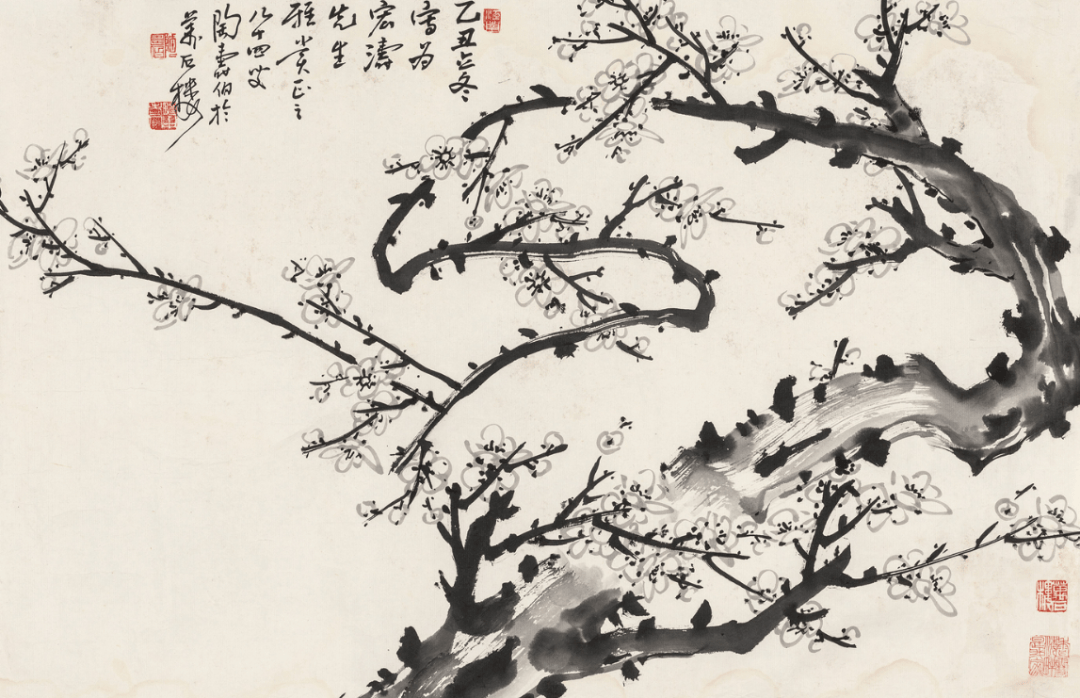 乙丑立冬
寫為
宏濤
先生
雅賞正之
八十四叟
陶壽伯於
萬石樓